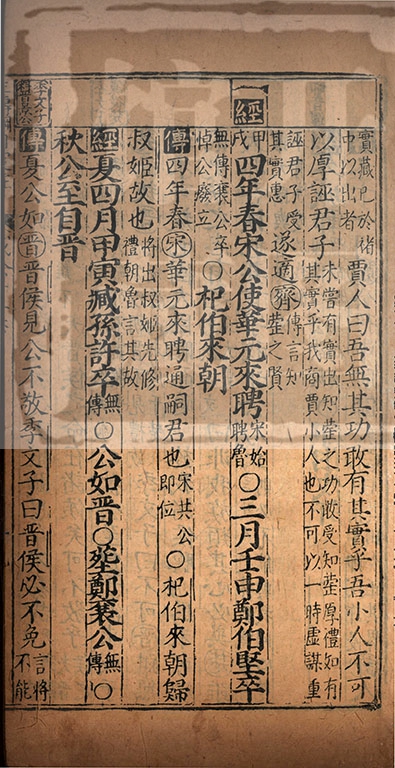 實藏已於褚中以出者賈人曰吾無其功敢有其實乎吾小人不可
以厚誣君子未嘗有實出知罃之功敢受知罃厚禮如有其實乎我商賈小人也不可以一時虛謀重
誣君子受其實惠遂適齊傳言知罃之賢
經甲戌四年春宋公使華元來聘宋始聘魯○三月壬申鄭伯堅卒
無傳襄公卒悼公廢立○杞伯來朝
傳四年春宋華元來聘通嗣君也宋共公即位○杞伯來朝歸
叔姬故也將出叔姬先修禮朝魯言其故
經夏四月甲寅臧孫許卒無傳○公如晉○葬鄭襄公無傳○
秋公至自晉
季文子
傳夏公如晉晉侯見公不敬季文子曰晉侯必不免言將不能